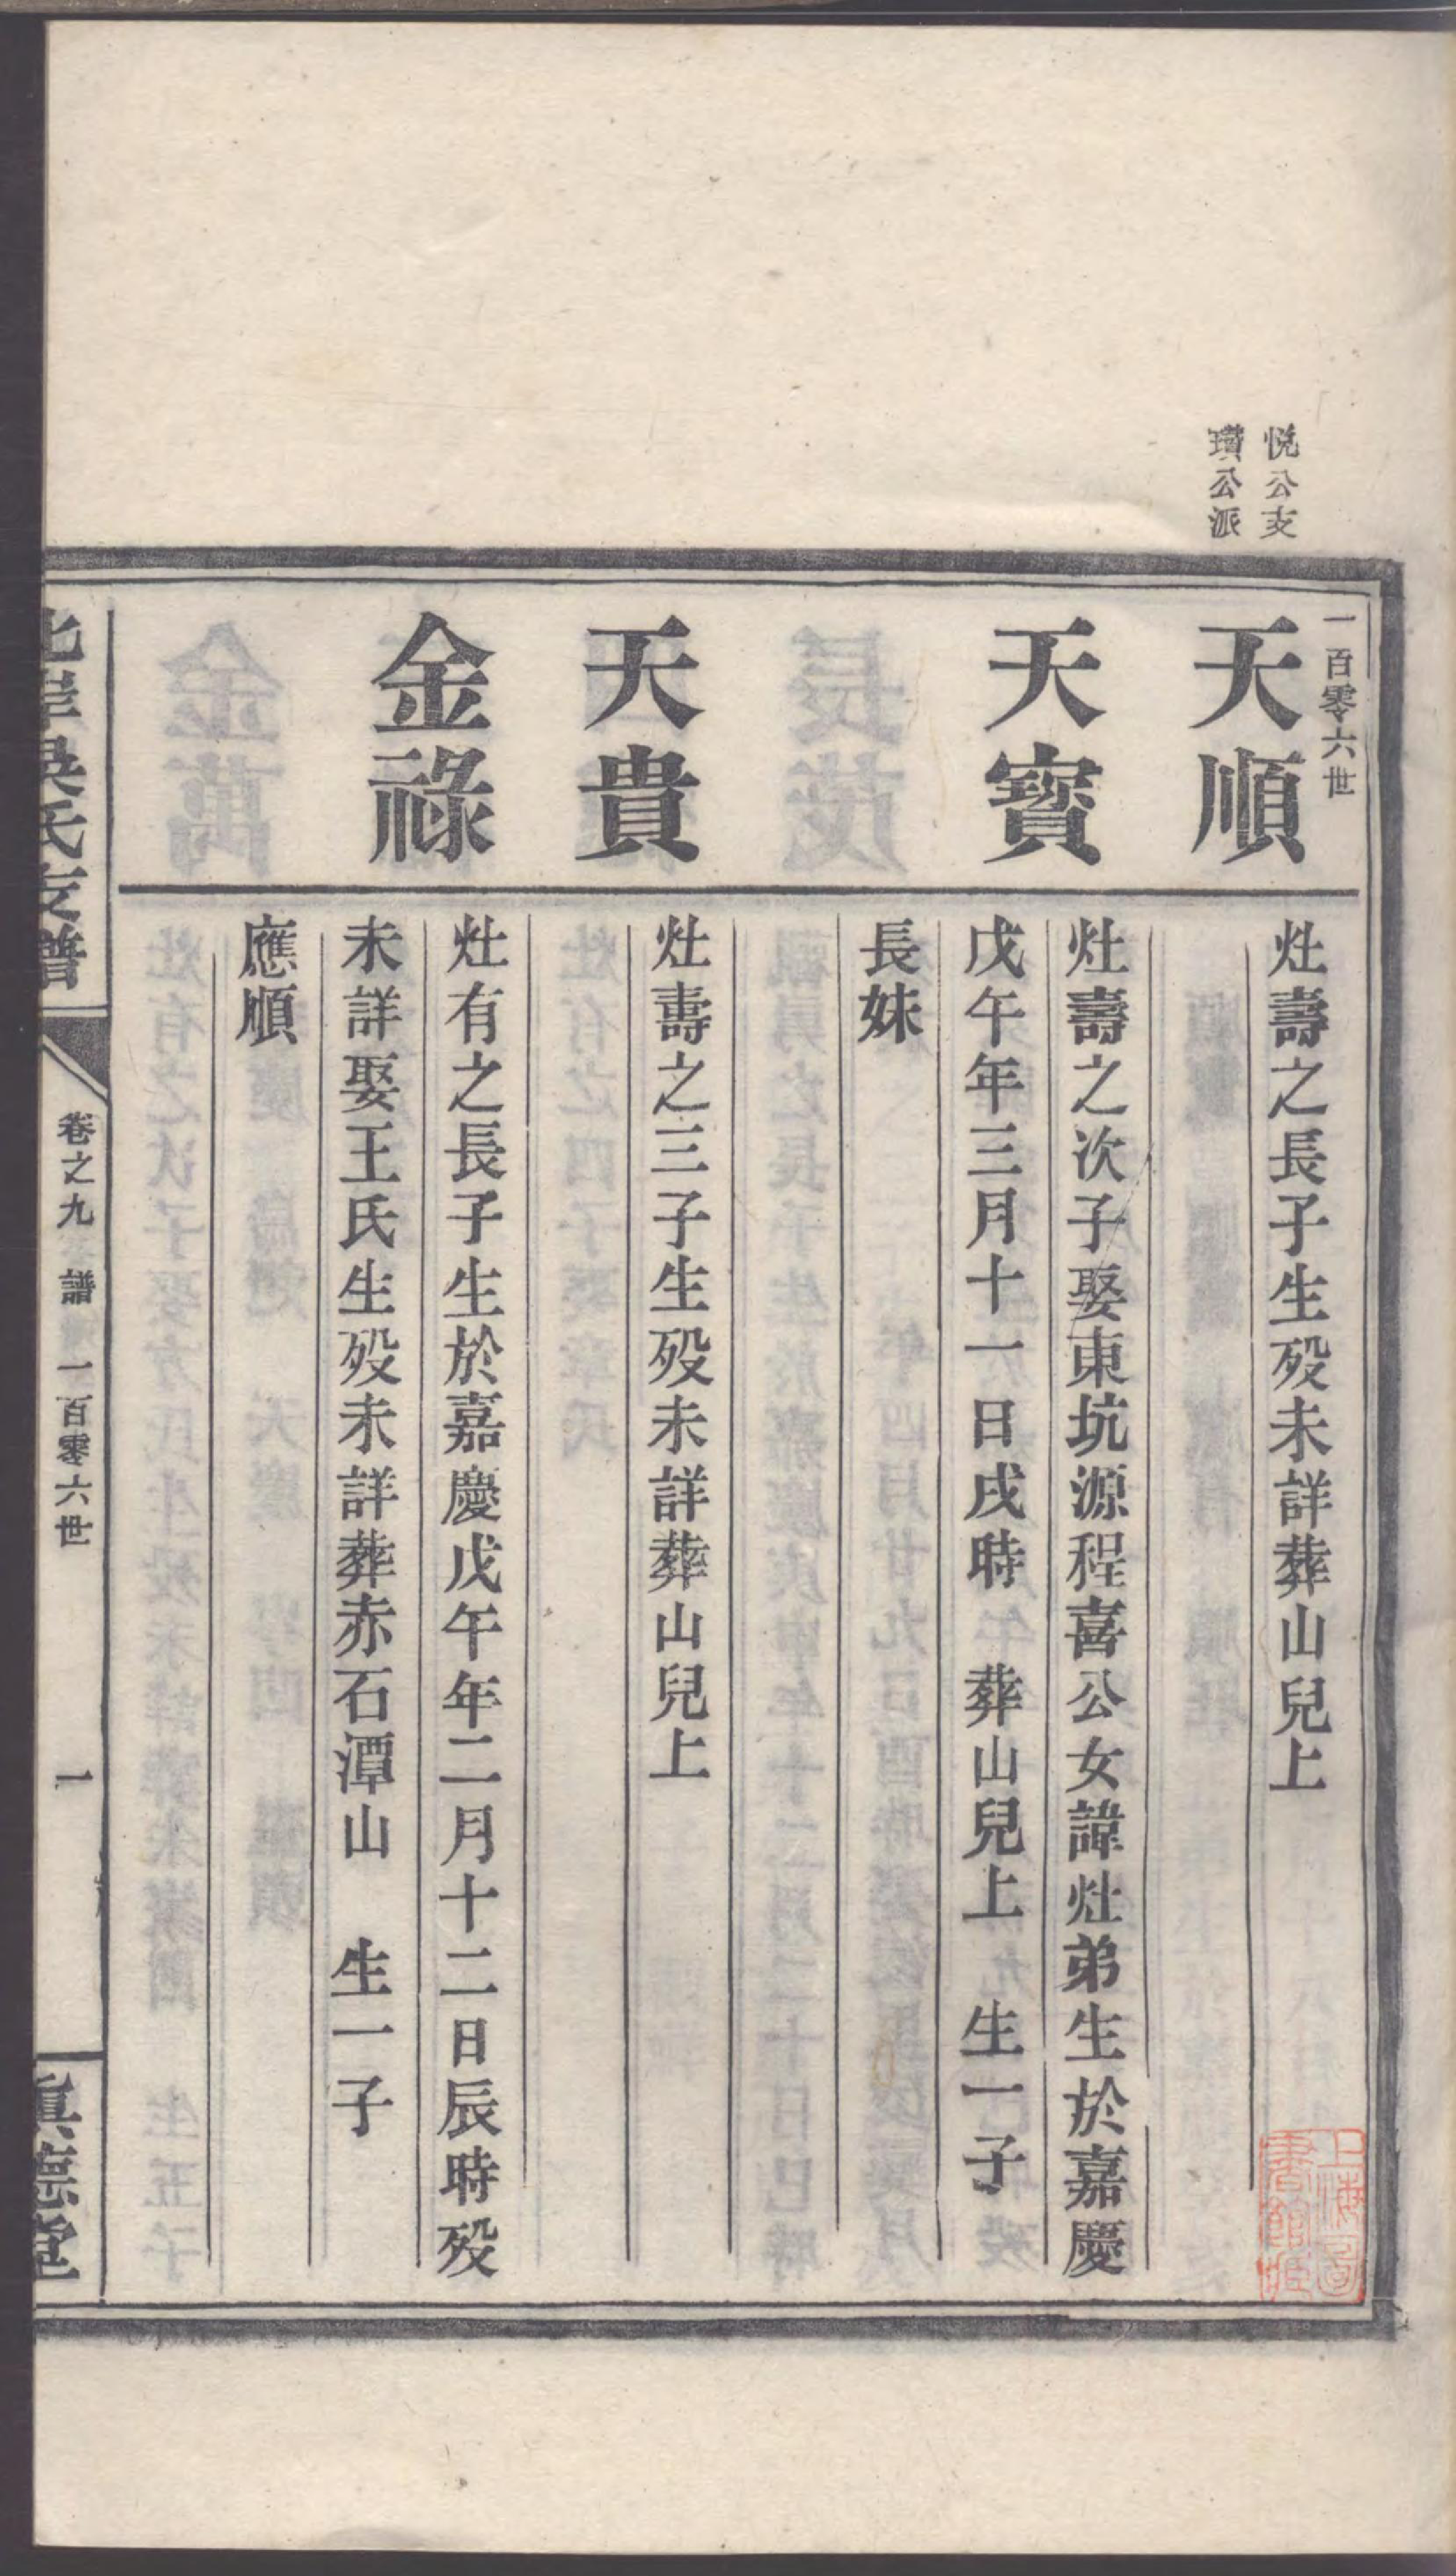 悅公支
瓚公派
一百零六世
天順
灶壽之長子生歿未詳葬山兒上
天寶
灶壽之次子娶東坑源程喜公女諱灶弟生於嘉慶
戊午年三月十一日戌時 葬山兒上 生一子
長妹
天貴
灶壽之三子生歿未詳葬山兒上
金祿
灶有之長子生於嘉慶戊午年二月十二日辰時歿
未詳娶王氏生歿未詳葬赤石潭山 生一子
應順
北岸吳氏支譜
卷之九 譜 一百零六世 一
眞德堂